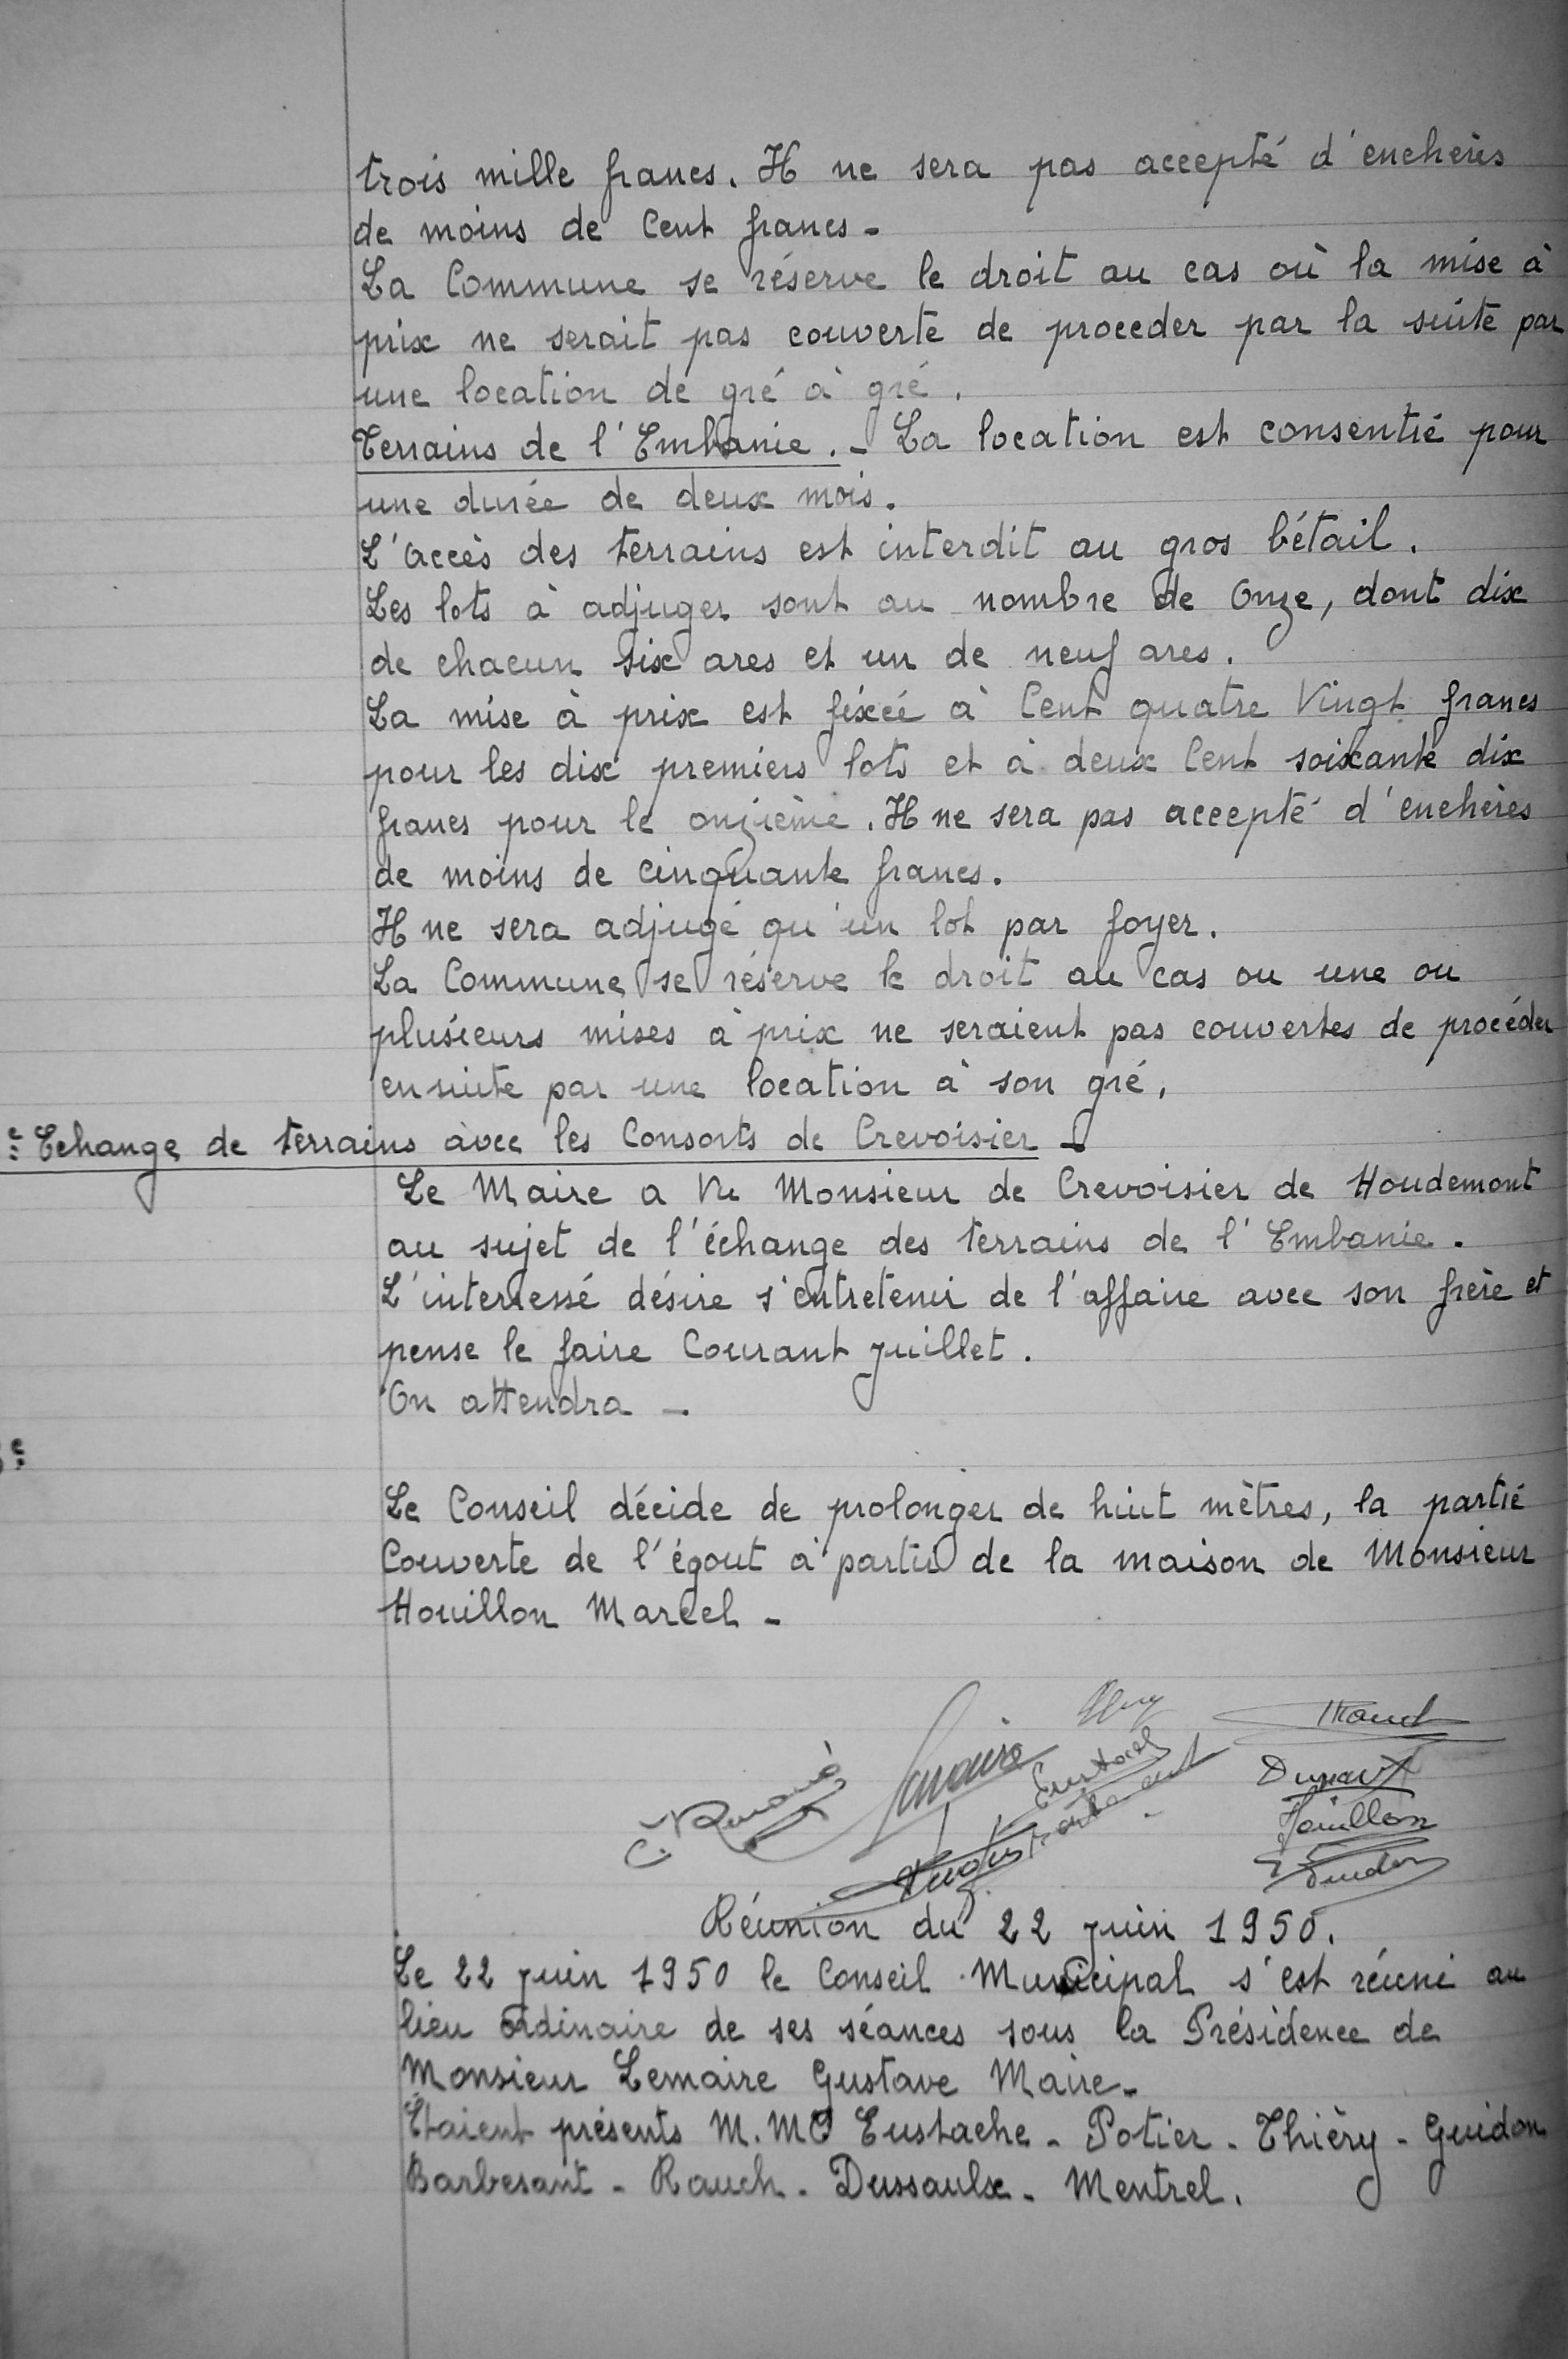 trois mille francs. Il ne sera pas accepté d'enchères
de moins de Cent francs -
La Commune se réserve le droit au cas où la mise à
prix ne serait pas couverte de proceder par la suite par
une location de gré à gré.
Terrains de l'Embanie. - La location est consentie pour
une durée de deux mois.
L'accès des terrains est interdit au gros bétail.
Les lots à adjuger sont au nombre de Onze, dont dix
de chacun six ares et un de neuf ares.
La mise à prix est fixée à Cent quatre Vingt francs
pour les dix premiers lots et à deux Cent soixante dix
francs pour le onzième. Il ne sera pas accepté d'enchères
de moins de cinquante francs.
Il ne sera adjugé qu'un lot par foyer.
La Commune se réserve le droit au cas ou une ou
plusieurs mises à prix ne seraient pas couvertes de procéder
ensuite par une location à son gré.
e: Echange de terrains avec les Consorts de Crevoisier -
Le Maire a Vu Monsieur de Crevoisier de Houdemont
au sujet de l'échange des terrains de l'Embanie.
L'interressé désire s'entretenir de l'affaire avec son frère et
pense le faire Courant juillet.
On attendra -
e:
Le Conseil décide de prolonger de huit mètres, la partie
Couverte de l'égout à partir de la maison de Monsieur
Houillon Marcel -
Lemaire
Eustache
Houillon
Réunion du 22 juin 1950.
Le 22 juin 1950 le Conseil Municipal s'est réuni au
lieu ordinaire de ses séances sous la Présidence de
Monsieur Lemaire Gustave Maire -
Etaient présents M.M Eustache - Potier - Thièry - Guidon
Barbesant - Rauch - Dussaulx - Mentrel.